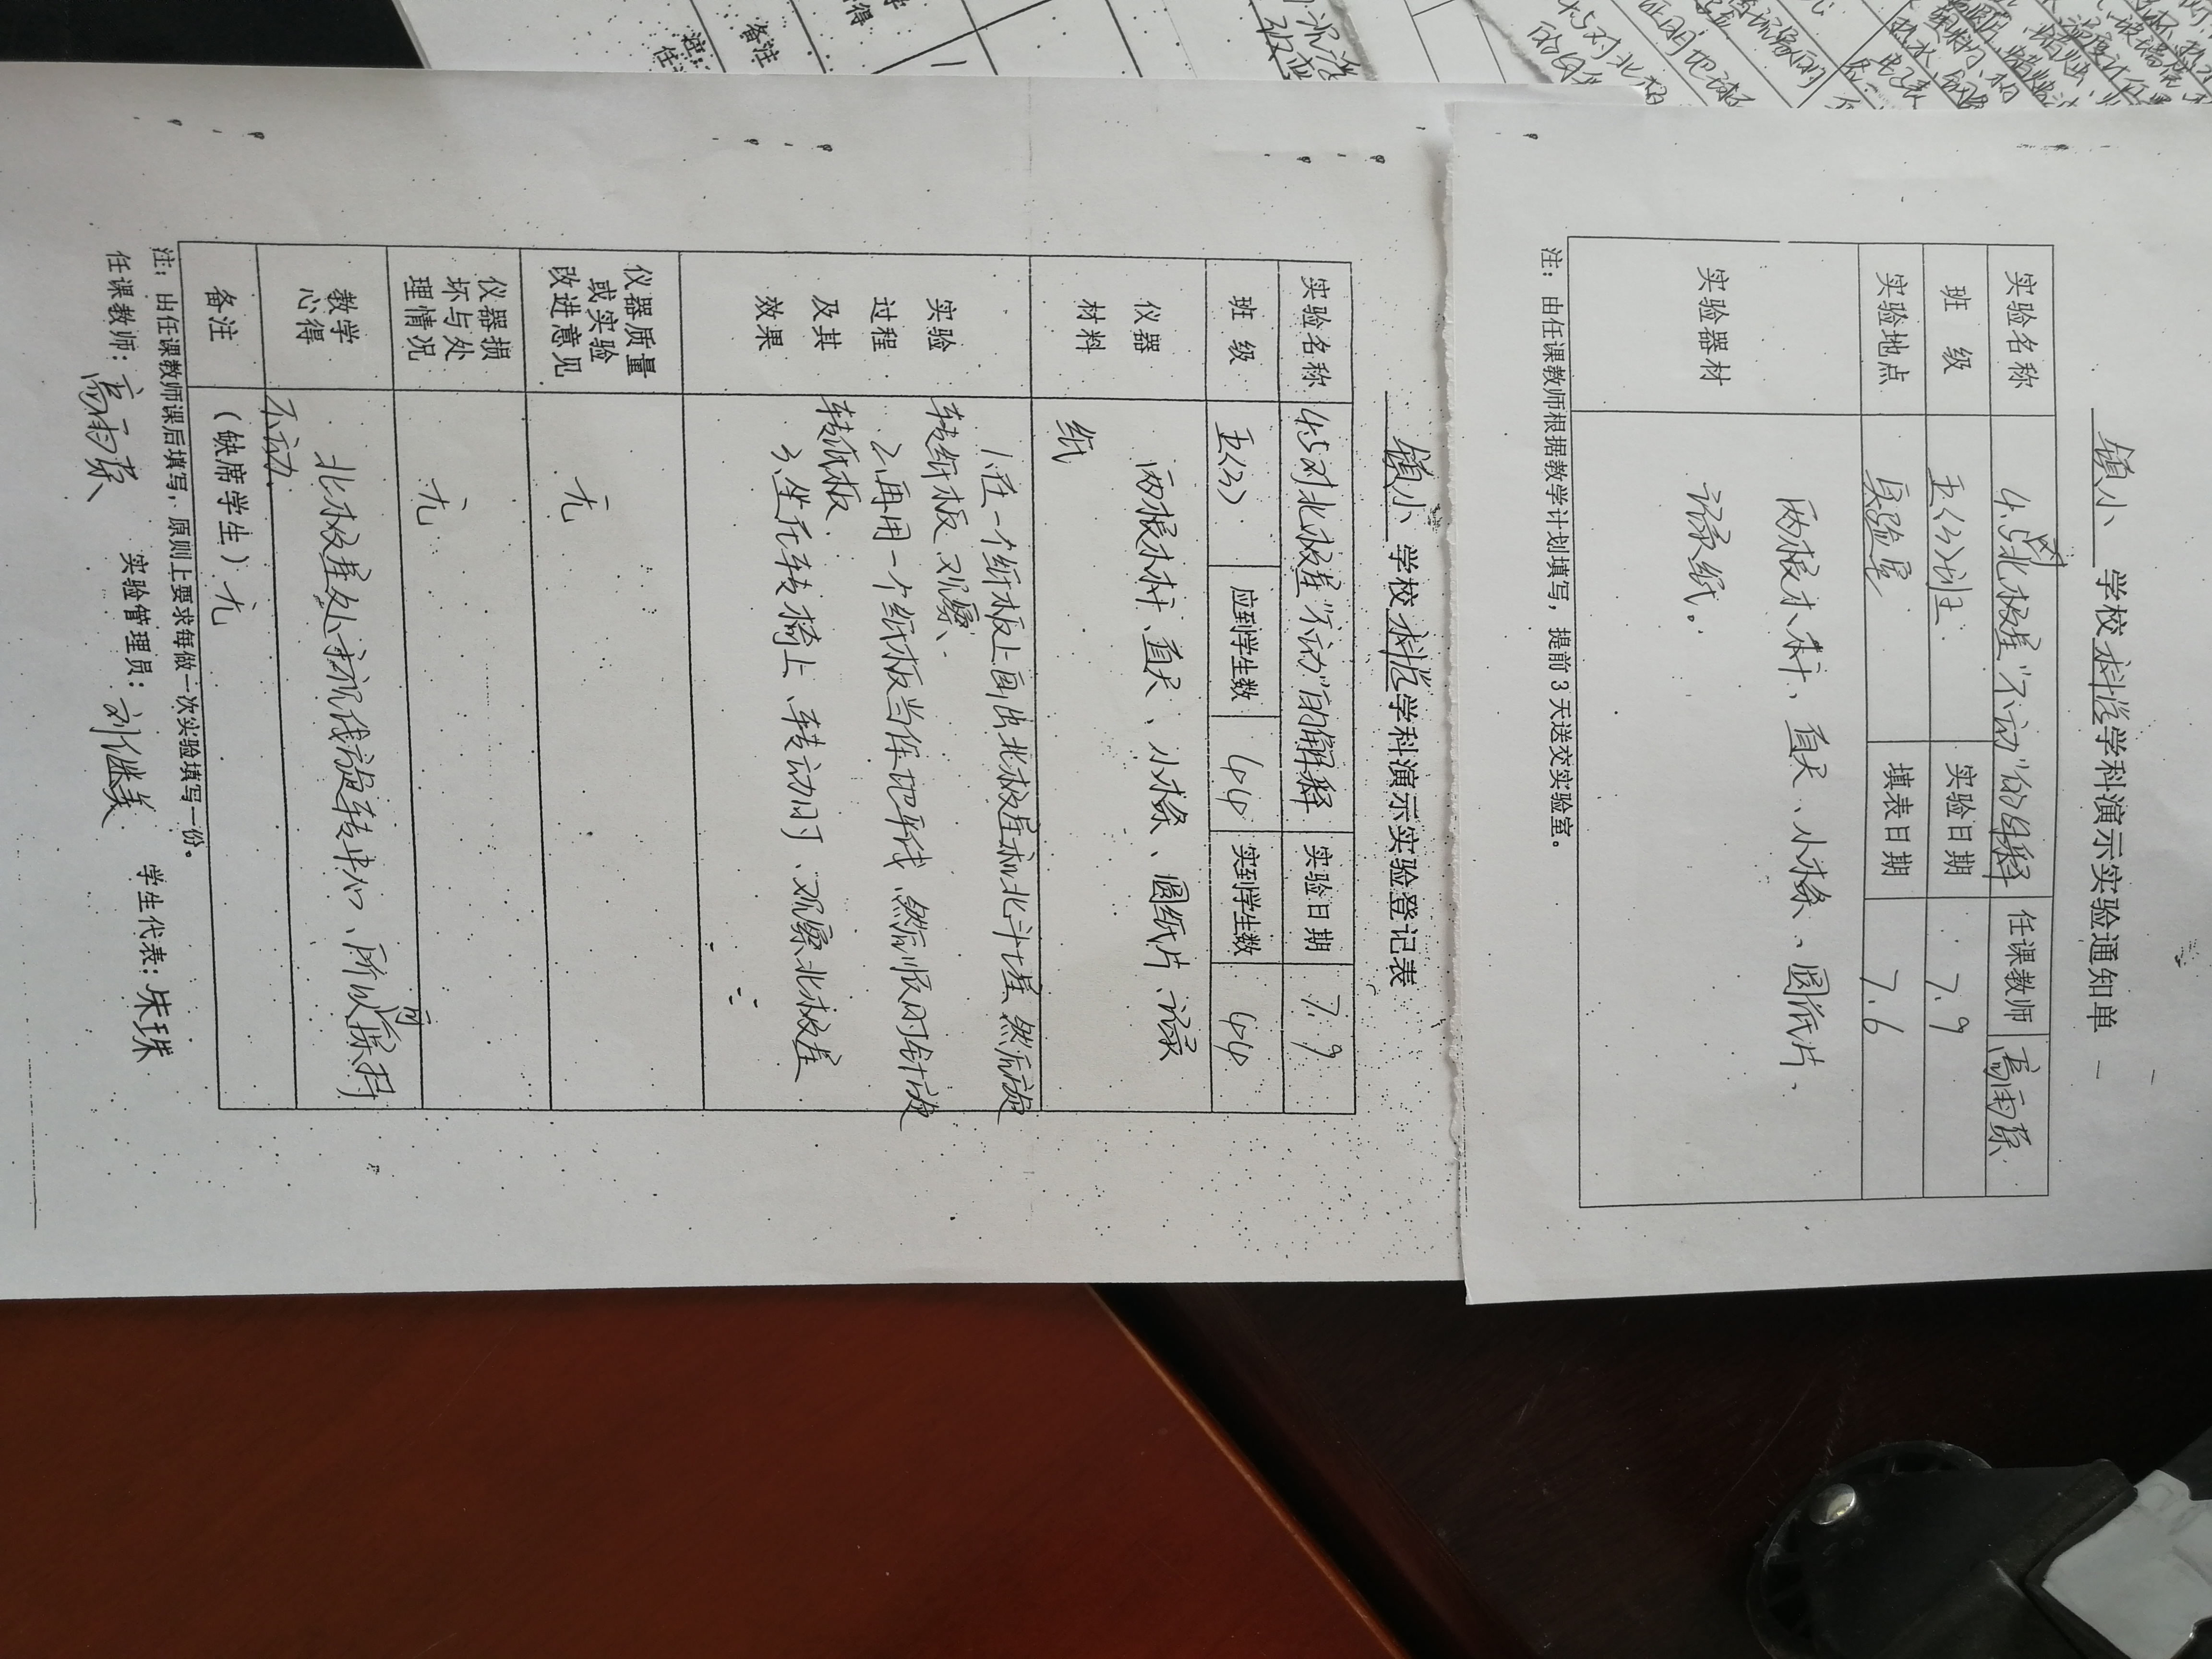 镇小 学校 科学 学科演示实验通知单
实验名称 4.5对北极星“不动”的解释 任课教师 高雨荪
班 级 五(2)班 实验日期 7.9
实验地点 实验室 填表日期 7.6
实验器材 两根木杆、直尺、小球、圆纸片、
记录纸。
注: 由任课教师根据教学计划填写,提前3天送交实验室。
镇小 学校 科学 学科演示实验登记表
实验名称 4.5对北极星“不动”的解释 实验日期 7.9
班 级 五(2) 应到学生数 44 实到学生数 44
仪器
材料
两根木杆、直尺、小球、圆纸片、记录
纸
实验
过程
及其
效果
1.在一个纸板上画出北极星和北斗七星,然后旋
转纸板,观察、
2.再用一个纸板当作地平线,然后顺时针旋
转纸板.
3.坐在转椅上、转动时、观察北极星
仪器质量
或实验
改进意见
无
仪器损
坏与处
理情况
无
教学
心得
北极星处于视线旋转中心、所以可保持
不动.
备注 (缺席学生) 无
注: 由任课教师课后填写,原则上要求每做一次实验填写一份。
任课教师: 高雨荪 实验管理员: 刘继美 学生代表: 朱珠